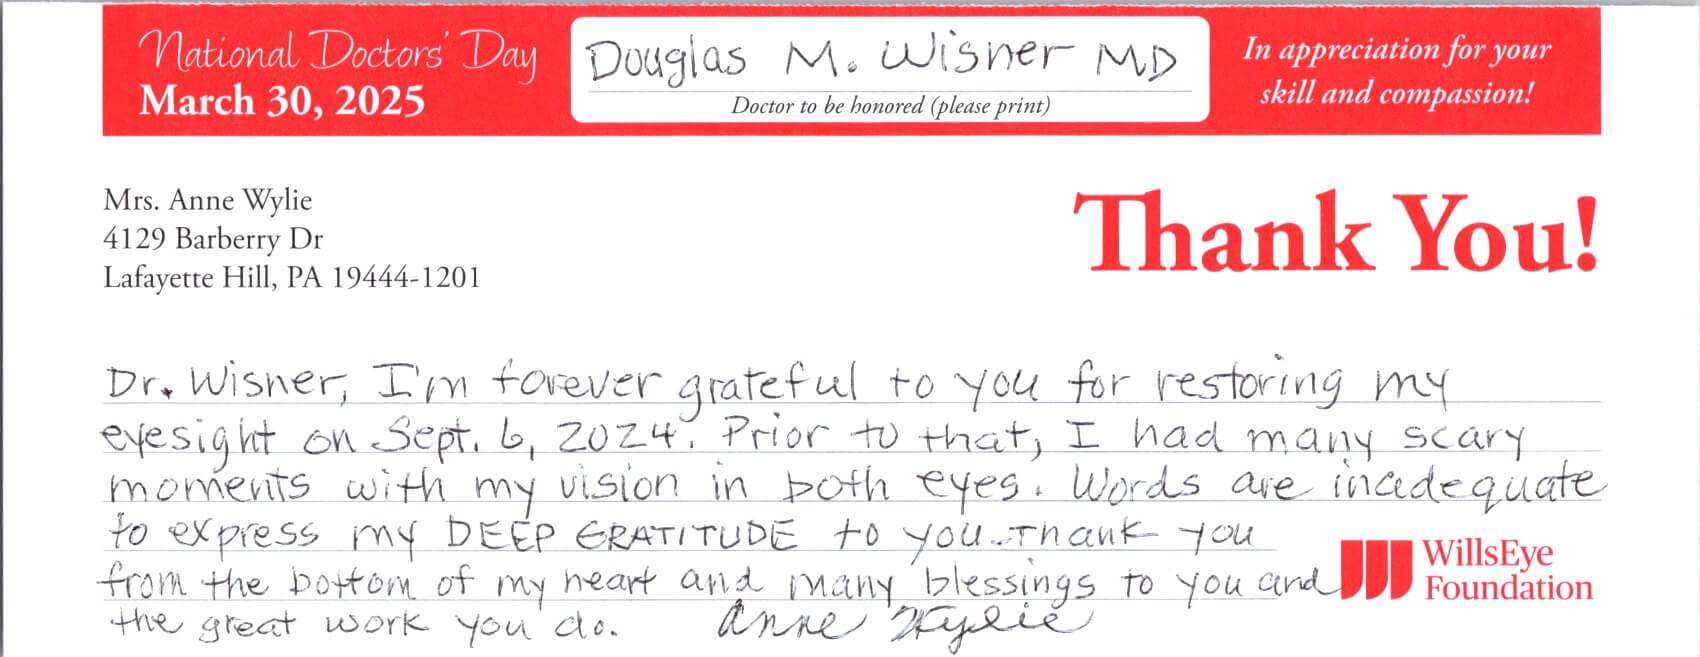 National Doctors' Day
March 30, 2025
Douglas M. Wisner MD
Doctor to be honored (please print)
In appreciation for your
skill and compassion!
Mrs. Anne Wylie
4129 Barberry Dr
Lafayette Hill, PA 19444-1201
Thank You!
Dr. Wisner, I'm forever grateful to you for restoring my
eyesight on Sept. 6, 2024. Prior to that, I had many scary
moments with my vision in both eyes. Words are inadequate
to express my DEEP GRATITUDE to you. Thank you
from the bottom of my heart and many blessings to you and
the great work you do. Anne Wylie
WillsEye
Foundation